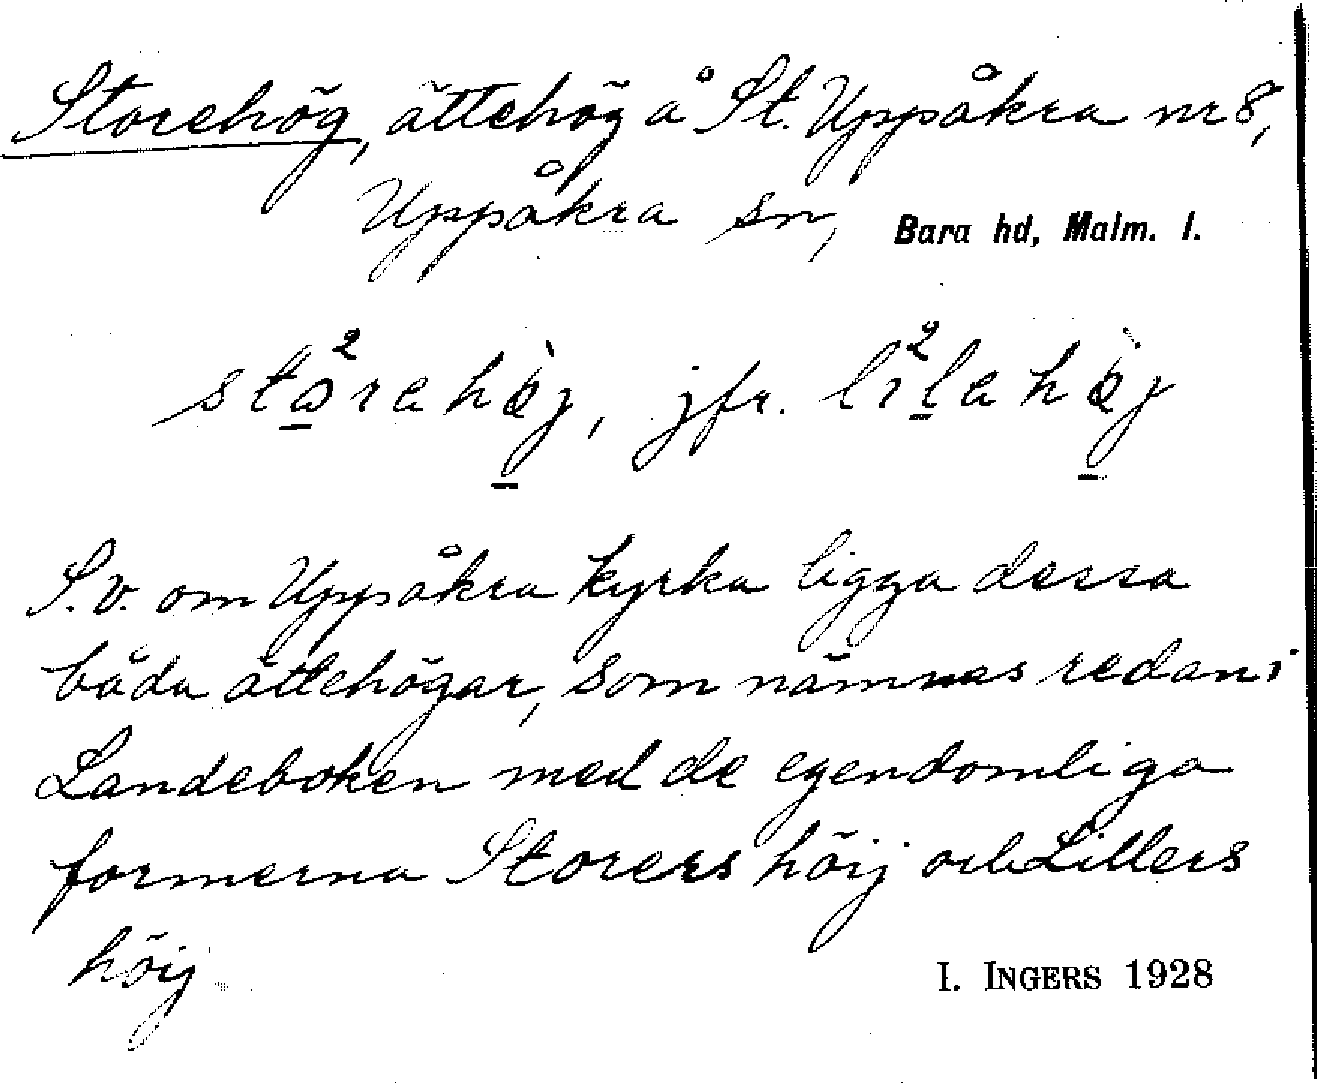 Storehög, ättehög å St. Uppåkra nr 8,
Uppåkra sn, Bara hd, Malm. l.
sto²rehø̀j, jfr. li²lehø̀j
S.v. om Uppåkra kyrka ligga dessa
båda ättehögar, som nämnas redan i
Landeboken med de egendomliga
formerna Storers höij och Lillers
höij
I. INGERS 1928